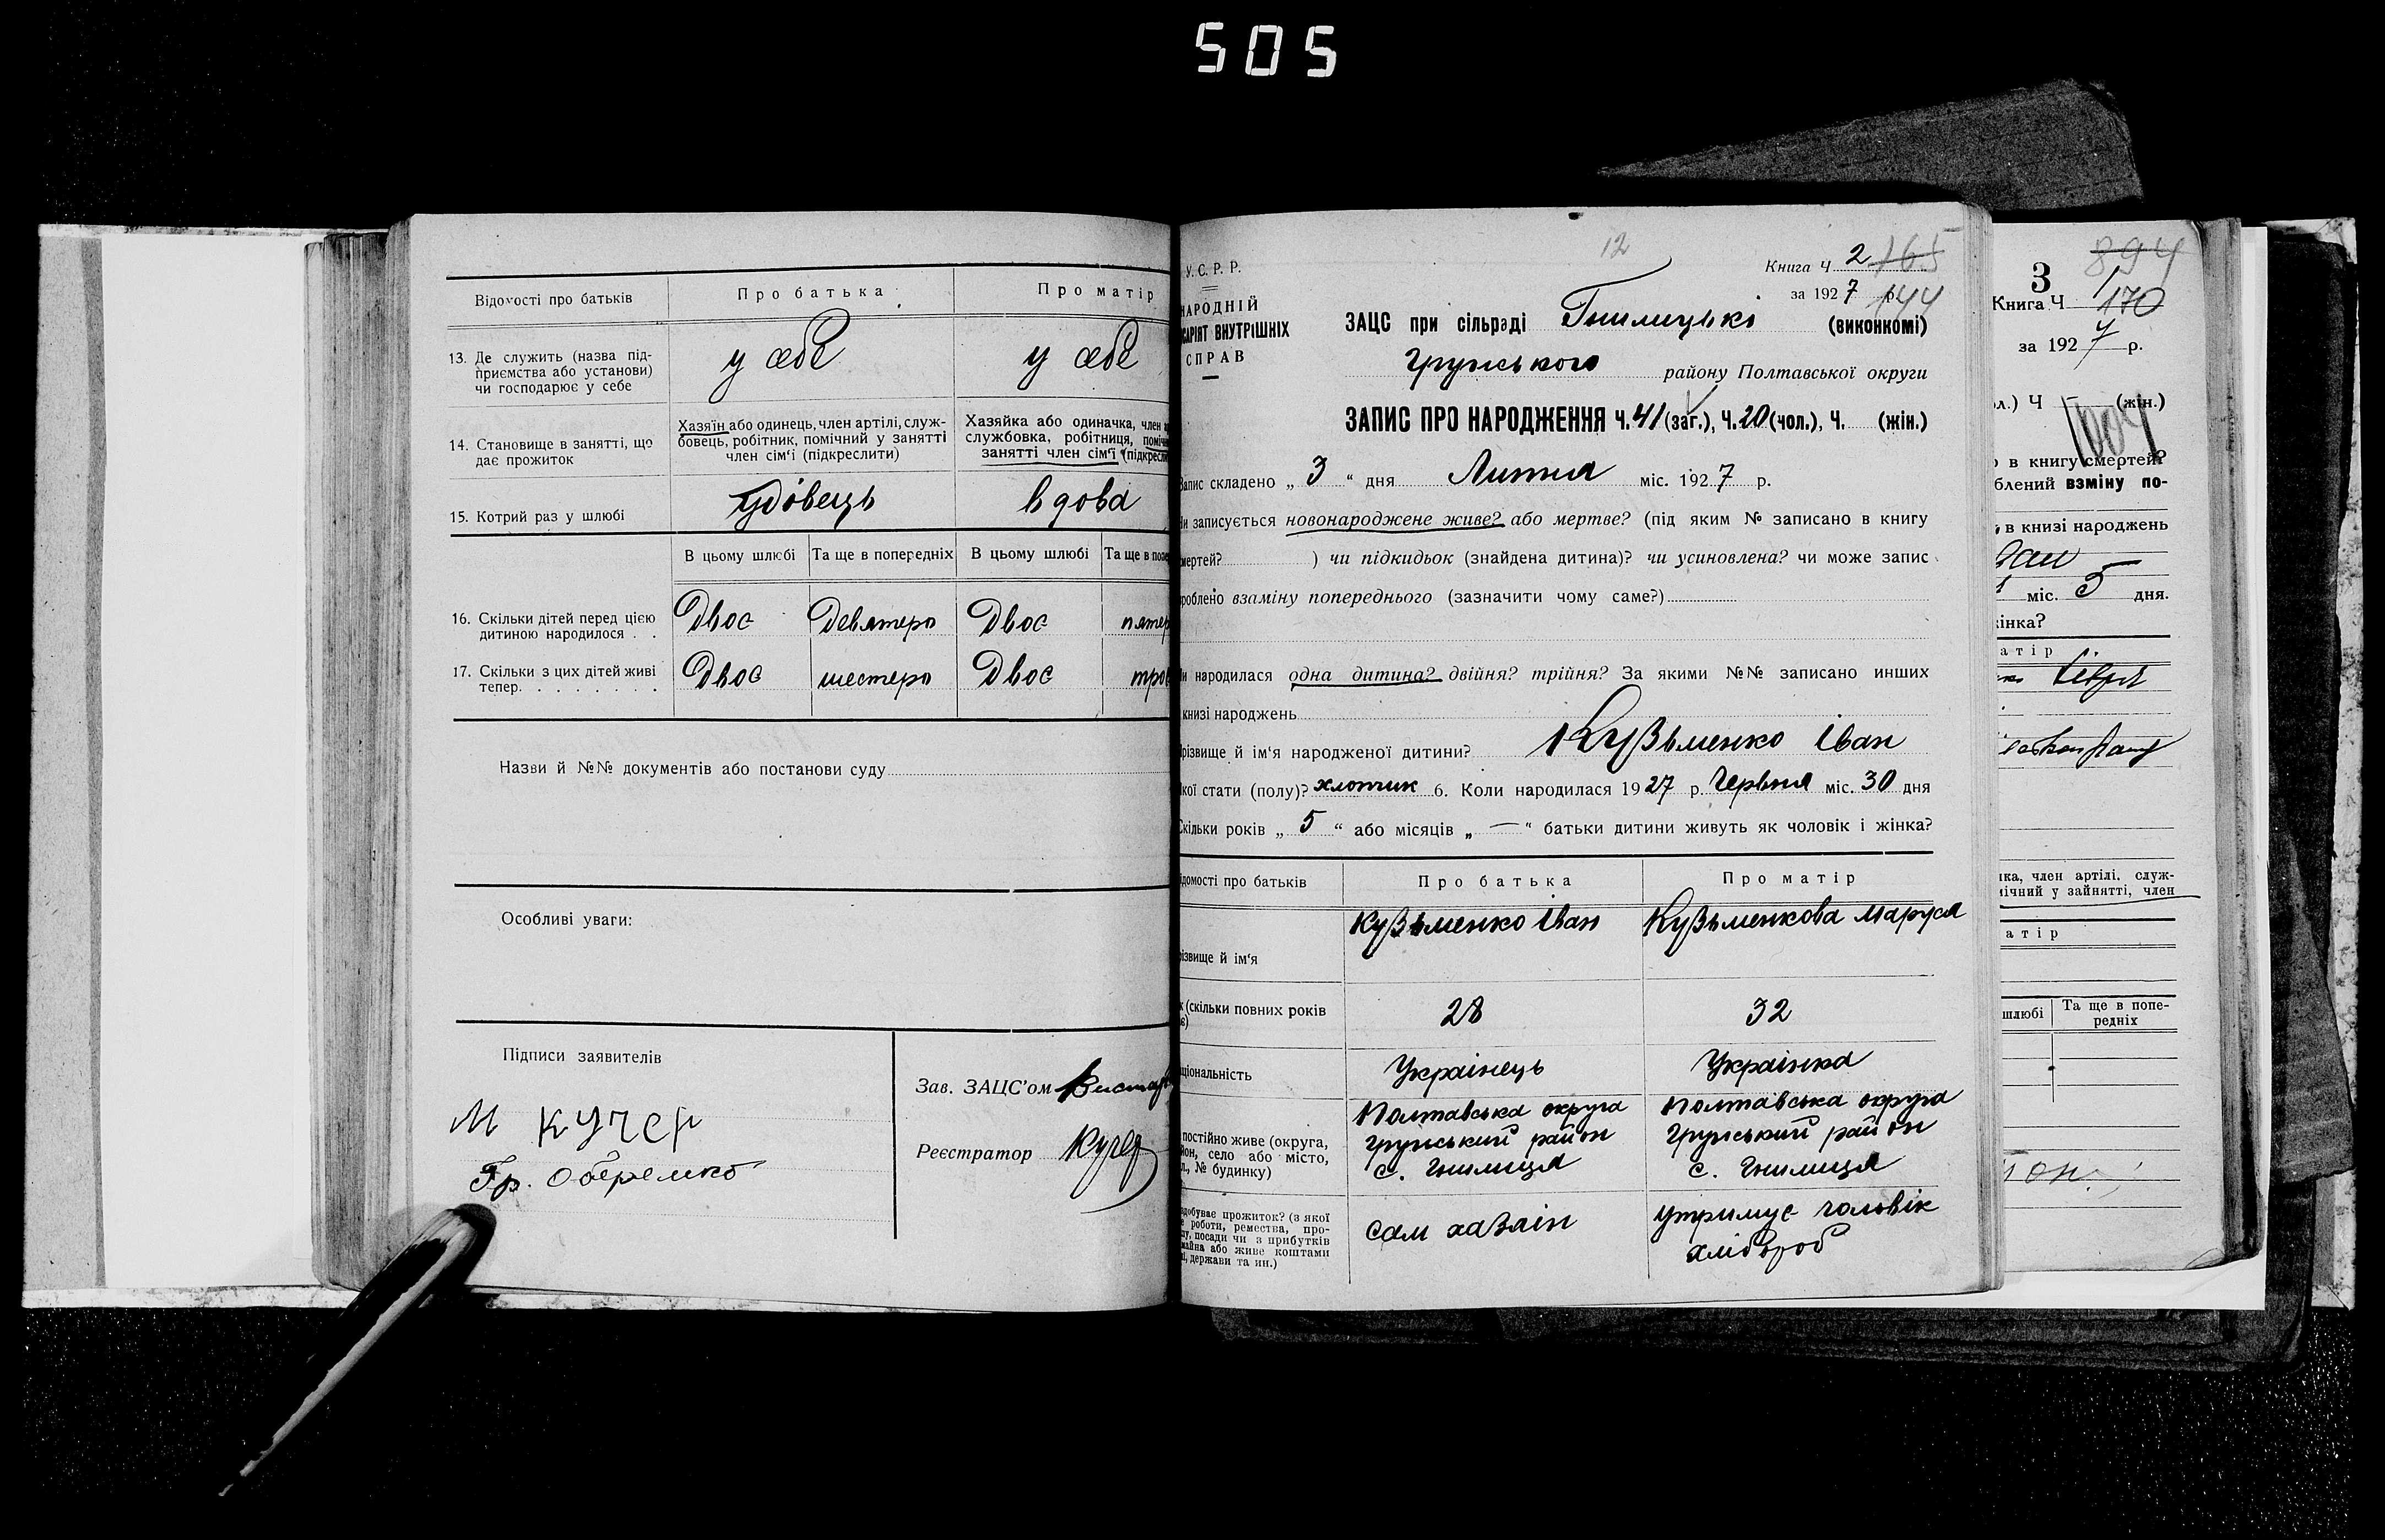 505
Відомості про батьків
Про батька
Про матір
13. Де служить (назва під-
приємства або установи)
чи господарює у себе
у себе
у себе
14. Становище в занятті, що
дає прожиток
Хазяїн або одинець, член артілі, служ-
бовець, робітник, помічний у занятті
член сім'ї (підкреслити)
Хазяйка або одиначка, член
службовка, робітниця,
занятті член сім'ї
15. Котрий раз у шлюбі
удовець
вдова
В цьому шлюбі
Та ще в попередніх
В цьому шлюбі
Та ще в
16. Скільки дітей перед цією
дитиною народилося . .
Двоє
Девятеро
Двоє
17. Скільки з цих дітей живі
тепер. . . . . . . .
Двоє
шестеро
Двоє
Назви й №№ документів або постанови суду
Особливі уваги:
Підписи заявителів
М Кучер
Гр. Оберемко
Зав. ЗАЦС'ом
Реєстратор Кучер
12
У.С.Р.Р.
Книга Ч 2 165
за 1927 р. 144
НАРОДНІЙ
ВНУТРІШНІХ
СПРАВ
ЗАЦС при сільраді Гнилицькі (виконкомі)
Грунського району Полтавської округи
ЗАПИС ПРО НАРОДЖЕННЯ Ч. 41 (заг.), Ч. 20 (чол.), Ч. (жін.)
Запис складено „ 3 “ дня Липня міс. 1927 р.
записується новонароджене живе? або мертве? (під яким № записано в книгу
) чи підкидьок (знайдена дитина)? чи усиновлена? чи може запис
взаміну попереднього (зазначити чому саме?)
народилася одна дитина? двійня? трійня? За якими №№ записано инших
книзі народжень
й ім'я народженої дитини? Кузьменко Іван
стати (полу)? хлопчик 6. Коли народилася 1927 р. Червня міс. 30 дня
Скільки років „ 5 “ або місяців „ — “ батьки дитини живуть як чоловік і жінка?
про батьків
Про батька
Про матір
й ім'я
Кузьменко Іван
Кузьменкова Маруся
(скільки повних років
28
32
Українець
Українка
постійно живе (округа,
село або місто,
№ будинку)
Полтавська округа
Грунський район
с. Гнилиця
Полтавська округа
Грунський район
с. Гнилиця
прожиток? (з якої
роботи, ремества, про-
посади чи з прибутків
або живе коштами
держави та ин.)
сам хазяїн
утримує чоловік
хлібороб
894
3
Книга Ч 1
170
за 1927 р.
Ч — (жін.)
1004
в книгу смертей?
взміну по-
в книзі народжень
міс. 5 дня.
член артілі, служ-
у зайнятті, член
шлюбі
Та ще в попе-
редніх